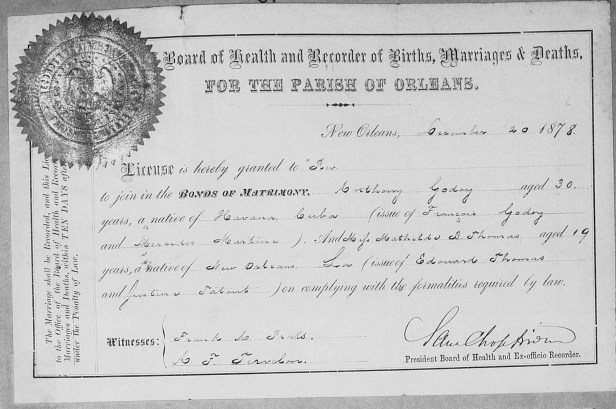 Board of Health and Recorder of Births, Marriages & Deaths,
FOR THE PARISH OF ORLEANS.
New Orleans, December 20 1878.
License is hereby granted to
to join in the BONDS OF MATRIMONY. Anthony Godoy aged 30
years, a native of Havana, Cuba (issue of François Godoy
and Mercedes Martine ). And Miss Mathilde B. Thomas aged 19
years, a native of New Orleans. La (issue of Edouard Thomas
and Justine ) on complying with the formalities required by law.
Witnesses: Frank
A. F.
President Board of Health and Ex-officio Recorder.
The Marriage shall be Recorded, and this Lic
to the Office of the Board of Health and Reco
Marriages and Deaths, within TEN DAYS afte
under the Penalty of Law.